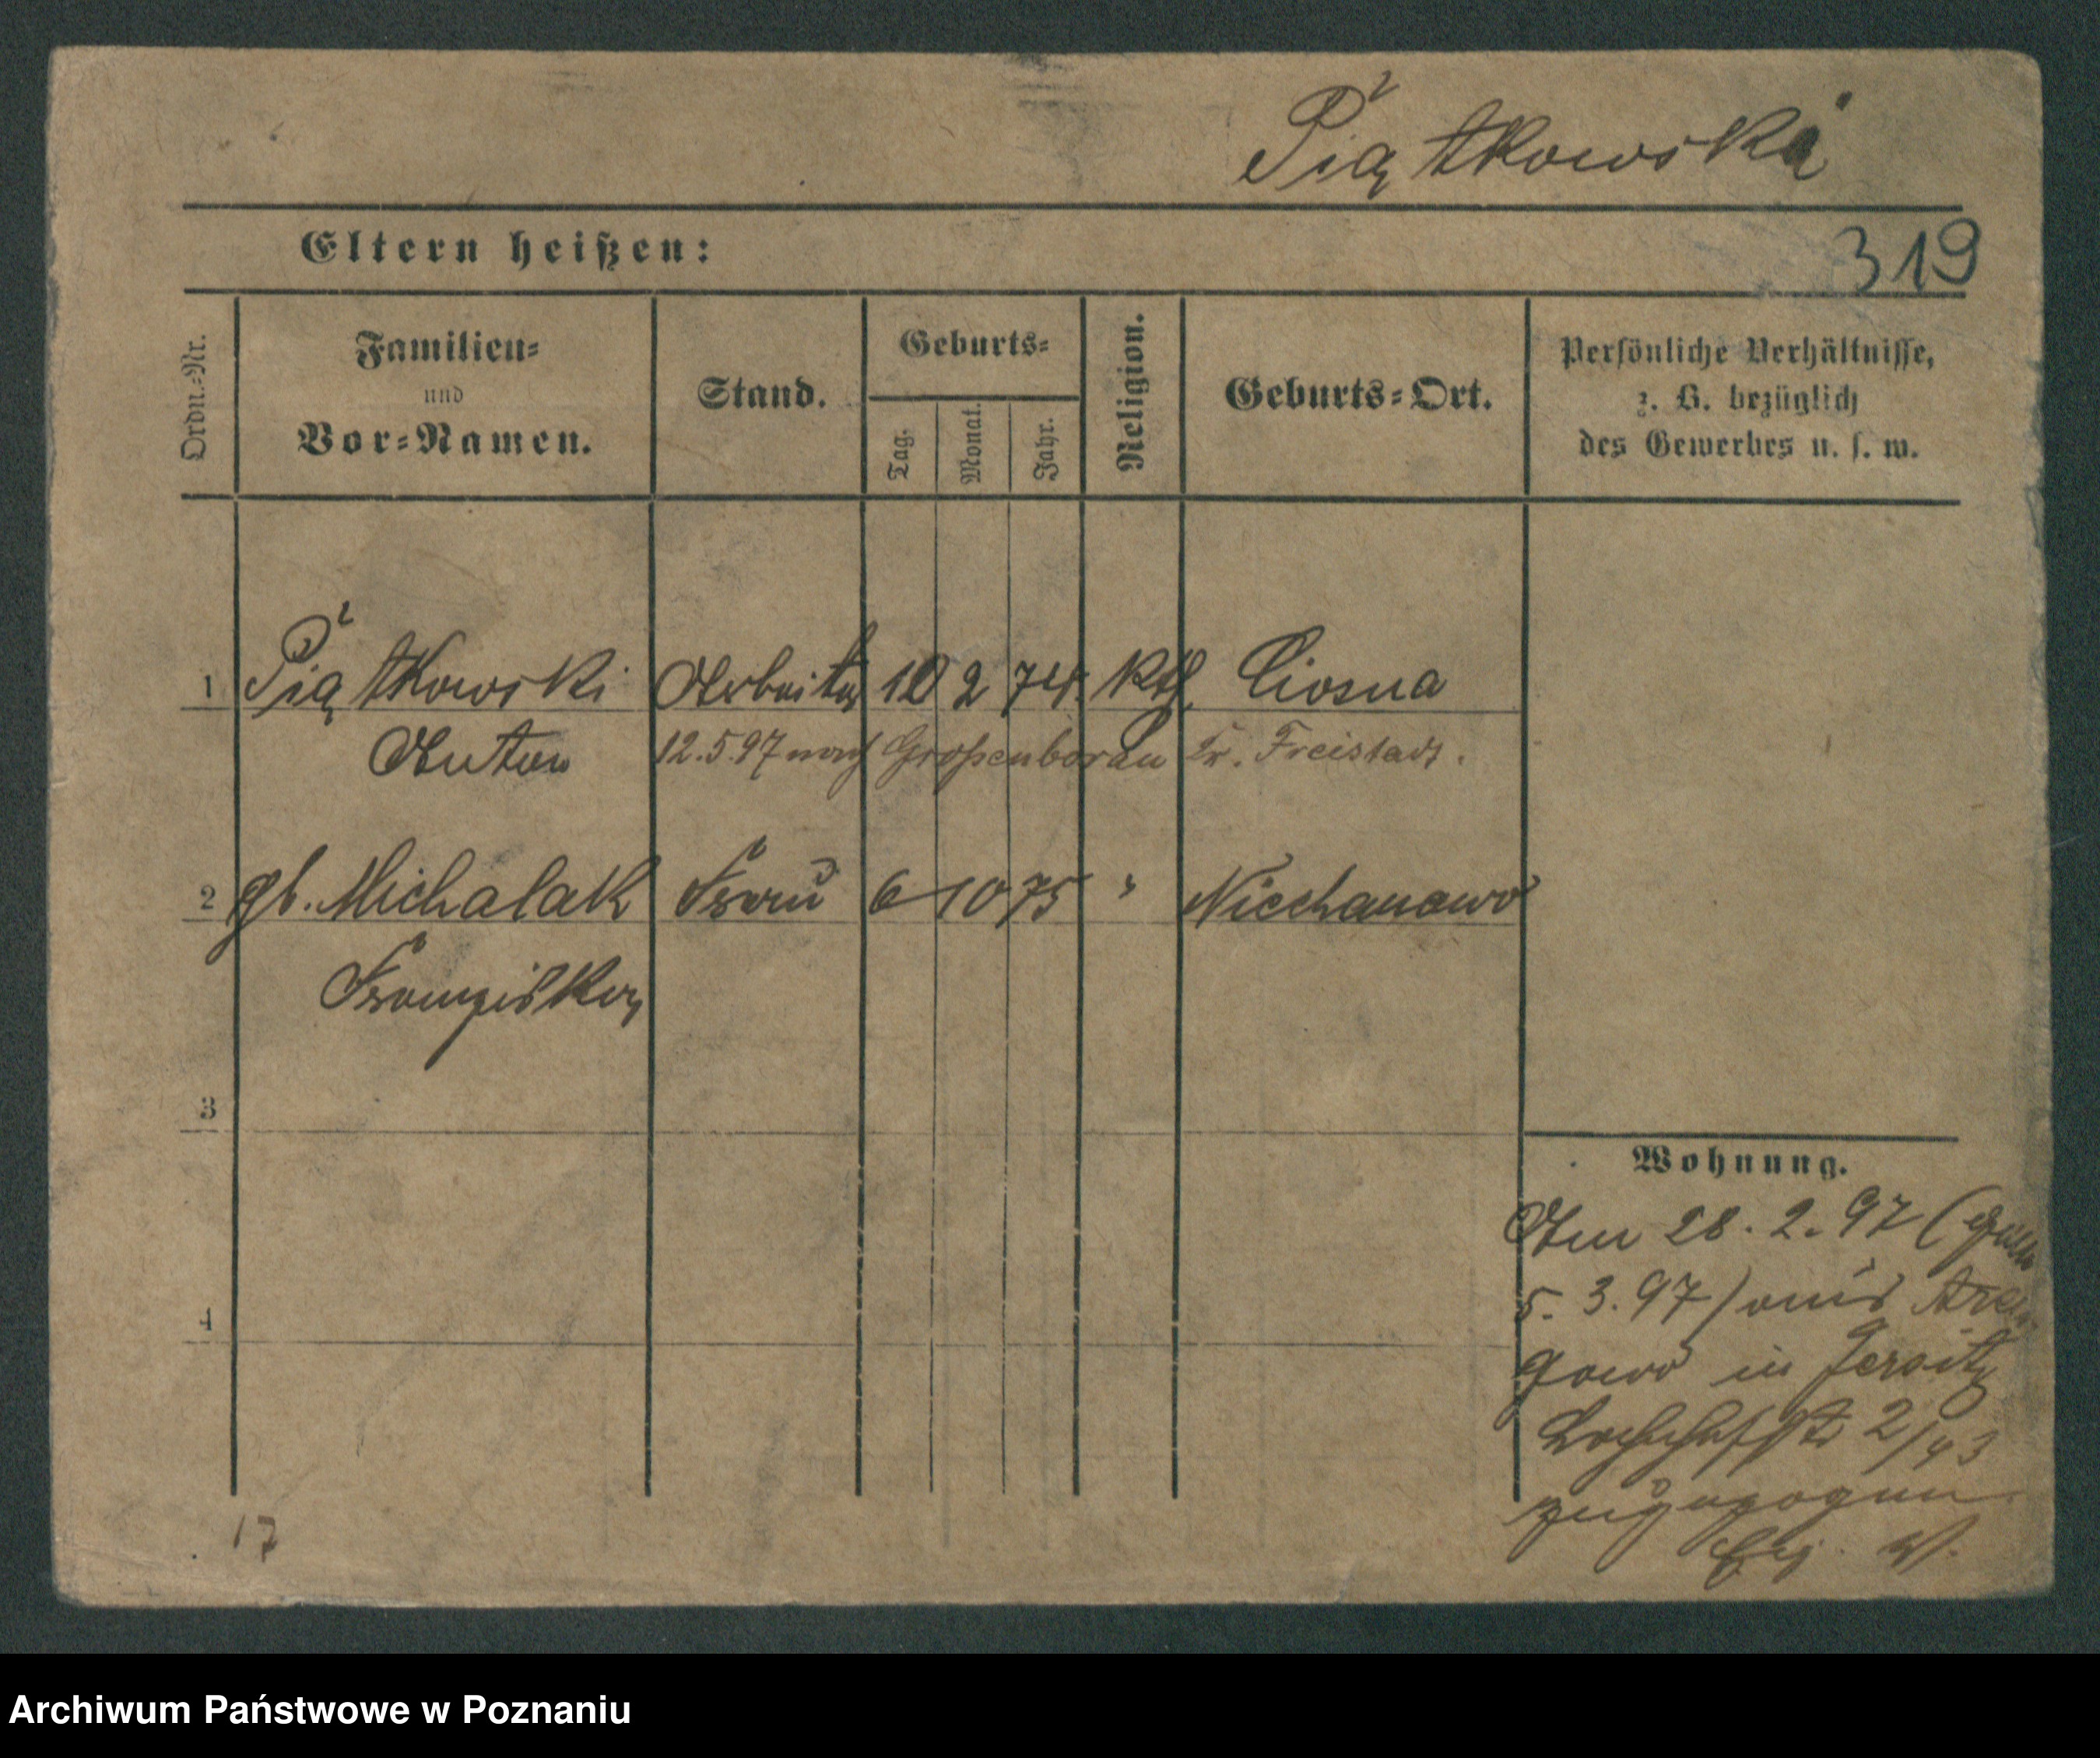 Piątkowski
Eltern heißen:
319
Ordn.=Nr.
Familien=
und
Vor=Namen.
Stand.
Geburts=
Tag.
Monat.
Jahr.
Religion.
Geburts=Ort.
Persönliche Verhältnisse,
z. B. bezüglich
des Gewerbes u. s. w.
1 Piątkowski Arbeiter 10 2 74. Kth. Ciosna
Anton 12.5.97 nach Großenborau Kr. Freistadt.
2 gb. Michalak Frau 6 10 75 " Niechanowo
Franziska
3
4
Wohnung.
Am 28. 2. 97 (
5. 3. 97) aus
in Jersitz
2/43
zugezogen
17
Archiwum Państwowe w Poznaniu